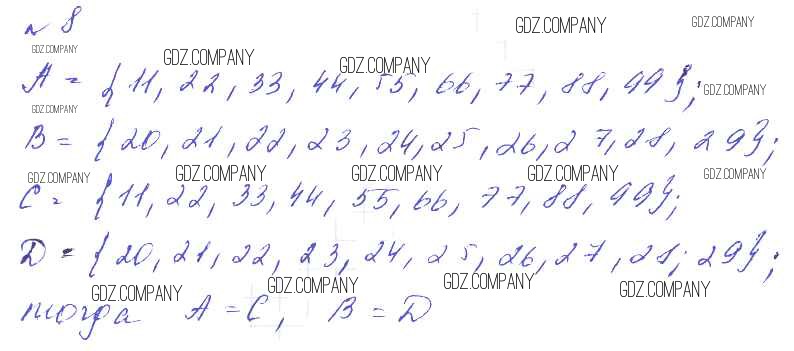 № 8
GDZ.COMPANY GDZ.COMPANY
GDZ.COMPANY GDZ.COMPANY GDZ.COMPANY
A = {11, 22, 33, 44, 55, 66, 77, 88, 99};
GDZ.COMPANY
GDZ.COMPANY
B = {20, 21, 22, 23, 24, 25, 26, 27, 28, 29};
GDZ.COMPANY GDZ.COMPANY GDZ.COMPANY GDZ.COMPANY GDZ.COMPANY
C = {11, 22, 33, 44, 55, 66, 77, 88, 99};
D = {20, 21, 22, 23, 24, 25, 26, 27, 28; 29};
GDZ.COMPANY GDZ.COMPANY GDZ.COMPANY GDZ.COMPANY
тогда A = C, B = D